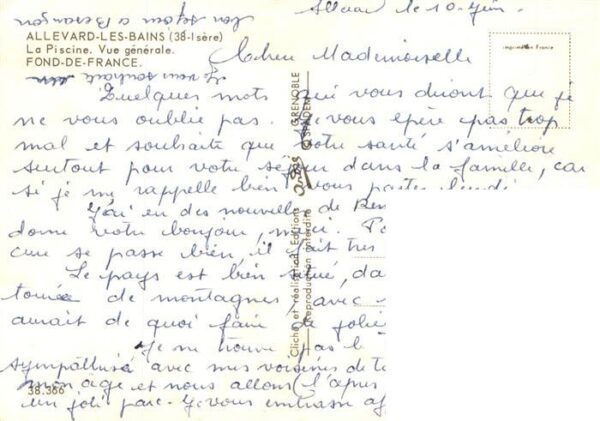 mon séjour à Besançon
ALLEVARD-LES-BAINS (38-Isère)
La Piscine. Vue générale.
FOND-DE-FRANCE.
Je vous souhaite un
Allevard le 10 Juin
imprimé en France
Chère Mademoiselle
Quelques mots qui vous diront que je
ne vous oublie pas. Je vous espère pas trop
mal et souhaite que votre santé s'améliore
surtout pour votre séjour dans la famille, car
si je me rappelle bien vous partez lundi
J'ai eu des nouvelles de
donne votre bonjour, merci.
cure se passe bien, il fait très
Le pays est bien situé, da
de montagnes, avec
aurait de quoi faire de jolie
Je me trouve pas l
sympathisé avec mes voisines de t
mon âge et nous allons l'apr
un joli parc. Je vous embrasse af
38.366
Cliché et réalisation Editions André GRENOBLE
Reproduction interdite SPADEM